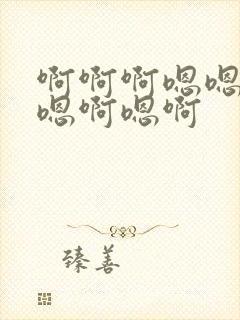 啊啊啊嗯嗯
嗯啊嗯啊
臻善